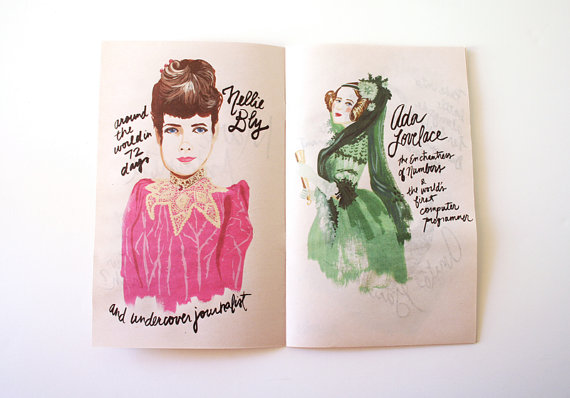 around
the
world in
72
days
Nellie
Bly
and undercover journalist
Ada
Lovelace
the Enchantress
of Numbers
& the world's
first
computer
programmer